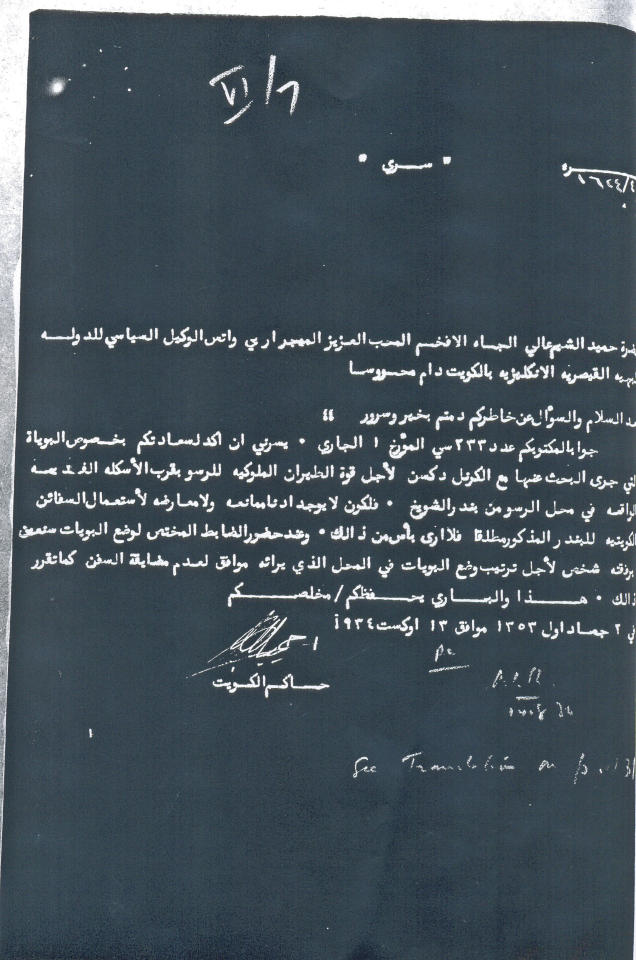 VI/7
" سري "
نمرة
١٦٤٤/٤
حميد الشيم عالي الجاه الافخم المحب العزيز الميجر اربي واتس الوكيل السياسي للدولـــه
البهيه القيصريه الانكليزيه بالكويت دام محـــروسا
السلام والسؤال عن خاطركم دمتم بخير وسرور ٤٤
جوابا لمكتوبكم عدد ٢٣٣ سي المؤرخ ١ الجاري • يسرني ان اكد لسعادتكم بخصوص البوياة
التي جرى البحث عنها مع الكرنل دكسن لأجل قوة الطيران الملوكيه للرسو بقرب الأسكله القديمه
الواقعه في محل الرسو من بندر الشويخ • فلكون لا يوجد ادنا ممانعه ولا معارضه لأستعمال السفائن
الكويتيه للبندر المذكور مطلقا فلا ارى بأس من ذالك • وعند حضور الضابط المختص لوضع البويات ستعين
برفقته شخص لأجل ترتيب وضع البويات في المحل الذي يراه موافق لعدم مضايقة السفن كما تقرر
ذالك • هـــذا والبـاري يحـــفظكم / مخلصـــكم
في ٢ جماد اول ١٣٥٣ موافق ١٣ اوكست ١٩٣٤
حـــاكم الكويت
See Translation on p.